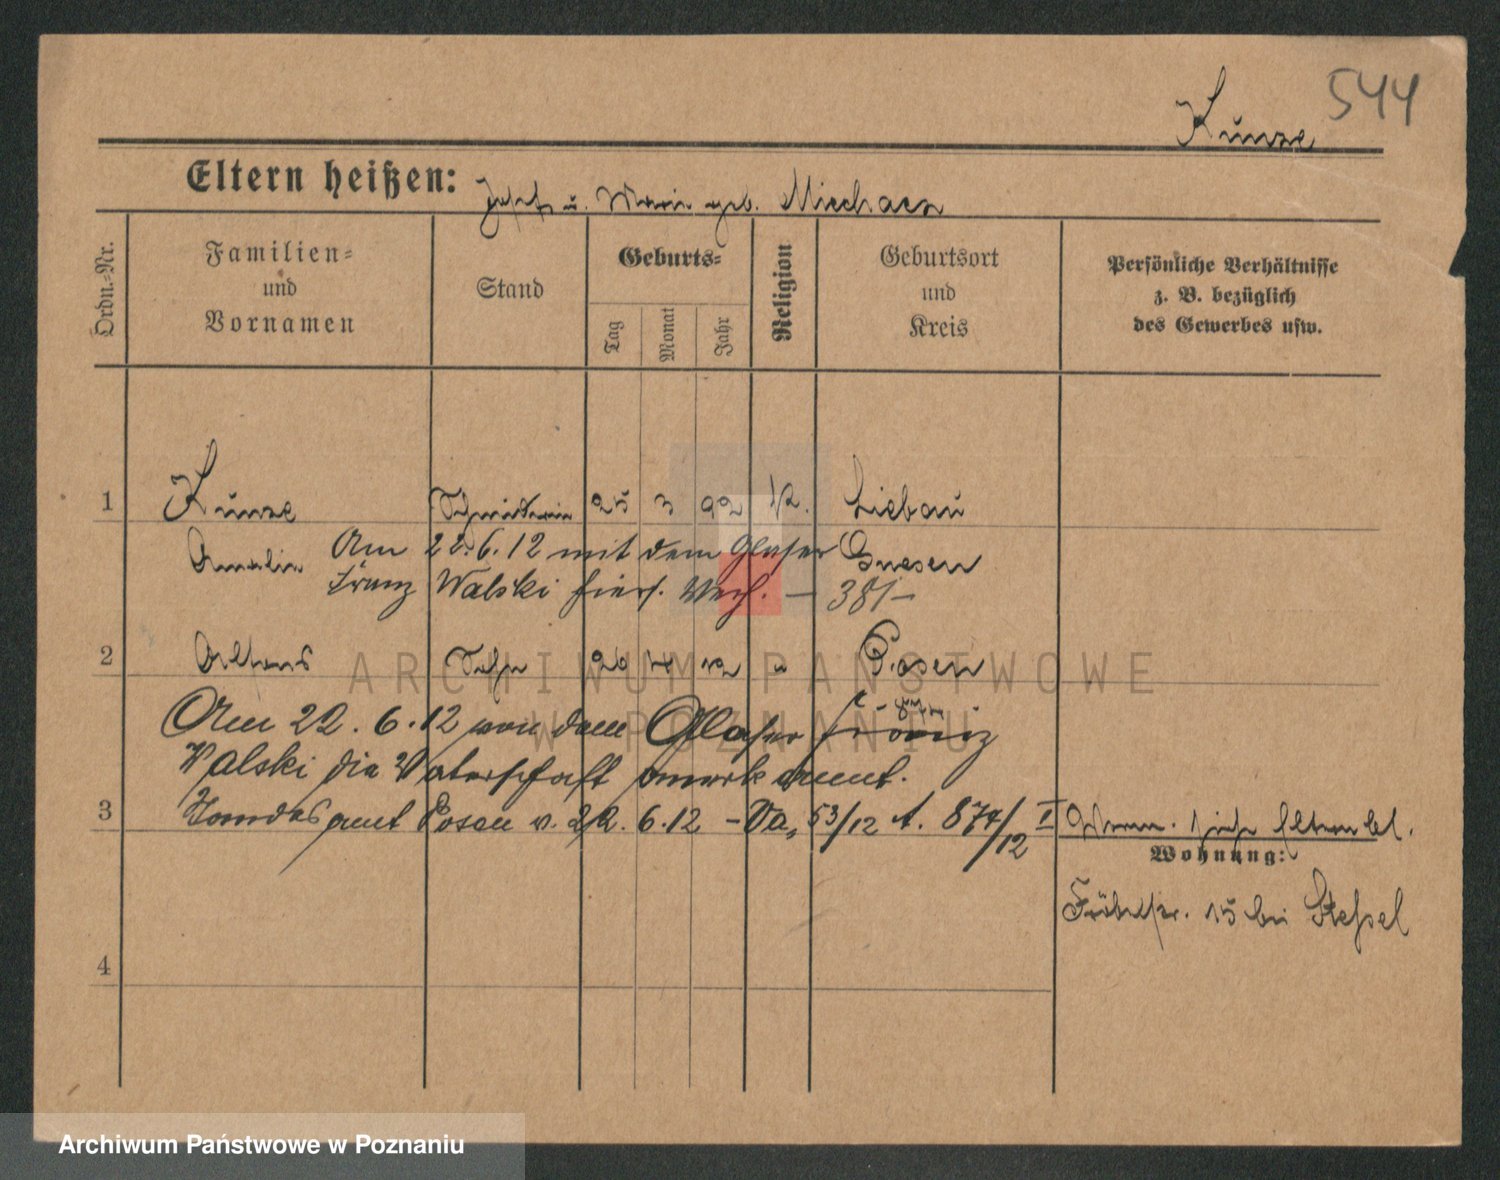 Kunze 544
Eltern heißen: Josef u. Marie geb. Miechaez
Ordn.-Nr.
Familien-
und
Vornamen
Stand
Geburts-
Tag
Monat
Jahr
Religion
Geburtsort
und
Kreis
Persönliche Verhältnisse
z. B. bezüglich
des Gewerbes usw.
1 Kunze 25 3 92 Liebau
Amalie Gnesen
Am 22.6.12 mit dem Glaser
Franz Walski hier. Verh. — 381 —
2 Alfons Sohn 20 4 12 " Posen
874
Am 22.6.12 von dem Glaser Franz
Walski die Vaterschaft anerkannt.
3 Standesamt Posen v. 22.6.12 - Va, 53/12 A. 874/12 I
siehe Elternbl.
Wohnung:
15 bei Stessel
4
ARCHIWUM PAŃSTWOWE
W POZNANIU
Archiwum Państwowe w Poznaniu